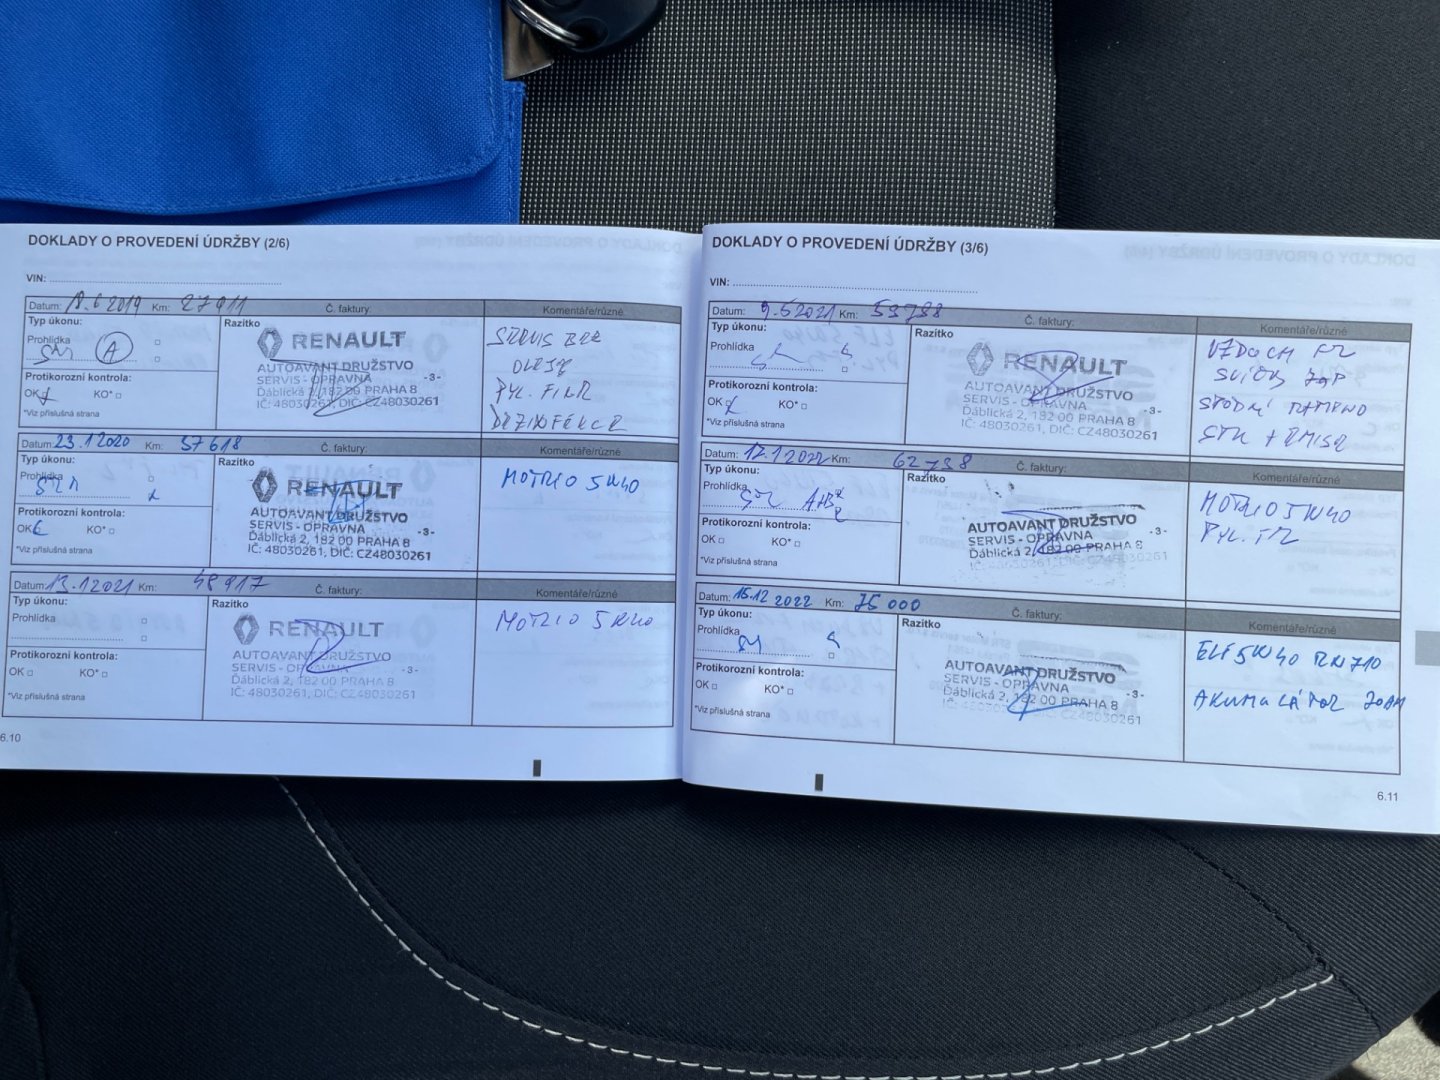 DOKLADY O PROVEDENÍ ÚDRŽBY (2/6)
VIN:
Datum: 18.6 2019 Km: 27911 Č. faktury: Komentáře/různé
Typ úkonu: Razítko
Prohlídka A
RENAULT
AUTOAVANT DRUŽSTVO
SERVIS - OPRAVNA -3-
Ďáblická 2, 182 00 PRAHA 8
IČ: 48030261, DIČ: CZ48030261
Protikorozní kontrola:
OK KO*
*Viz příslušná strana
SERVIS BEZ
OLEJE
PYL. FILTR
DEZINFEKCE
Datum: 23.1 2020 Km: 37618 Č. faktury: Komentáře/různé
Typ úkonu: Razítko
Prohlídka
RENAULT
AUTOAVANT DRUŽSTVO
SERVIS - OPRAVNA -3-
Ďáblická 2, 182 00 PRAHA 8
IČ: 48030261, DIČ: CZ48030261
Protikorozní kontrola:
OK KO*
*Viz příslušná strana
MOTRIO 5W40
Datum: 13.1 2021 Km: 48917 Č. faktury: Komentáře/různé
Typ úkonu: Razítko
Prohlídka
RENAULT
AUTOAVANT DRUŽSTVO
SERVIS - OPRAVNA -3-
Ďáblická 2, 182 00 PRAHA 8
IČ: 48030261, DIČ: CZ48030261
Protikorozní kontrola:
OK KO*
*Viz příslušná strana
MOTRIO 5W40
6.10
DOKLADY O PROVEDENÍ ÚDRŽBY (3/6)
VIN:
Datum: 9.6 2021 Km: Č. faktury: Komentáře/různé
Typ úkonu: Razítko
Prohlídka
RENAULT
AUTOAVANT DRUŽSTVO
SERVIS - OPRAVNA -3-
Ďáblická 2, 182 00 PRAHA 8
IČ: 48030261, DIČ: CZ48030261
Protikorozní kontrola:
OK KO*
*Viz příslušná strana
VZDUCH FIL
SVÍČKY ZAP
STK + EMISE
Datum: 12.1 2022 Km: 62738 Č. faktury: Komentáře/různé
Typ úkonu: Razítko
Prohlídka A+B
AUTOAVANT DRUŽSTVO
SERVIS - OPRAVNA -3-
Ďáblická 2, 182 00 PRAHA 8
IČ: 48030261, DIČ: CZ48030261
Protikorozní kontrola:
OK KO*
*Viz příslušná strana
MOTRIO 5W40
PYL. FIL
Datum: 15.12 2022 Km: 75 000 Č. faktury: Komentáře/různé
Typ úkonu: Razítko
Prohlídka
AUTOAVANT DRUŽSTVO
SERVIS - OPRAVNA -3-
Ďáblická 2, 182 00 PRAHA 8
IČ: 48030261, DIČ: CZ48030261
Protikorozní kontrola:
OK KO*
*Viz příslušná strana
ELF 5W40 RN710
AKUMULÁTOR 70AH
6.11